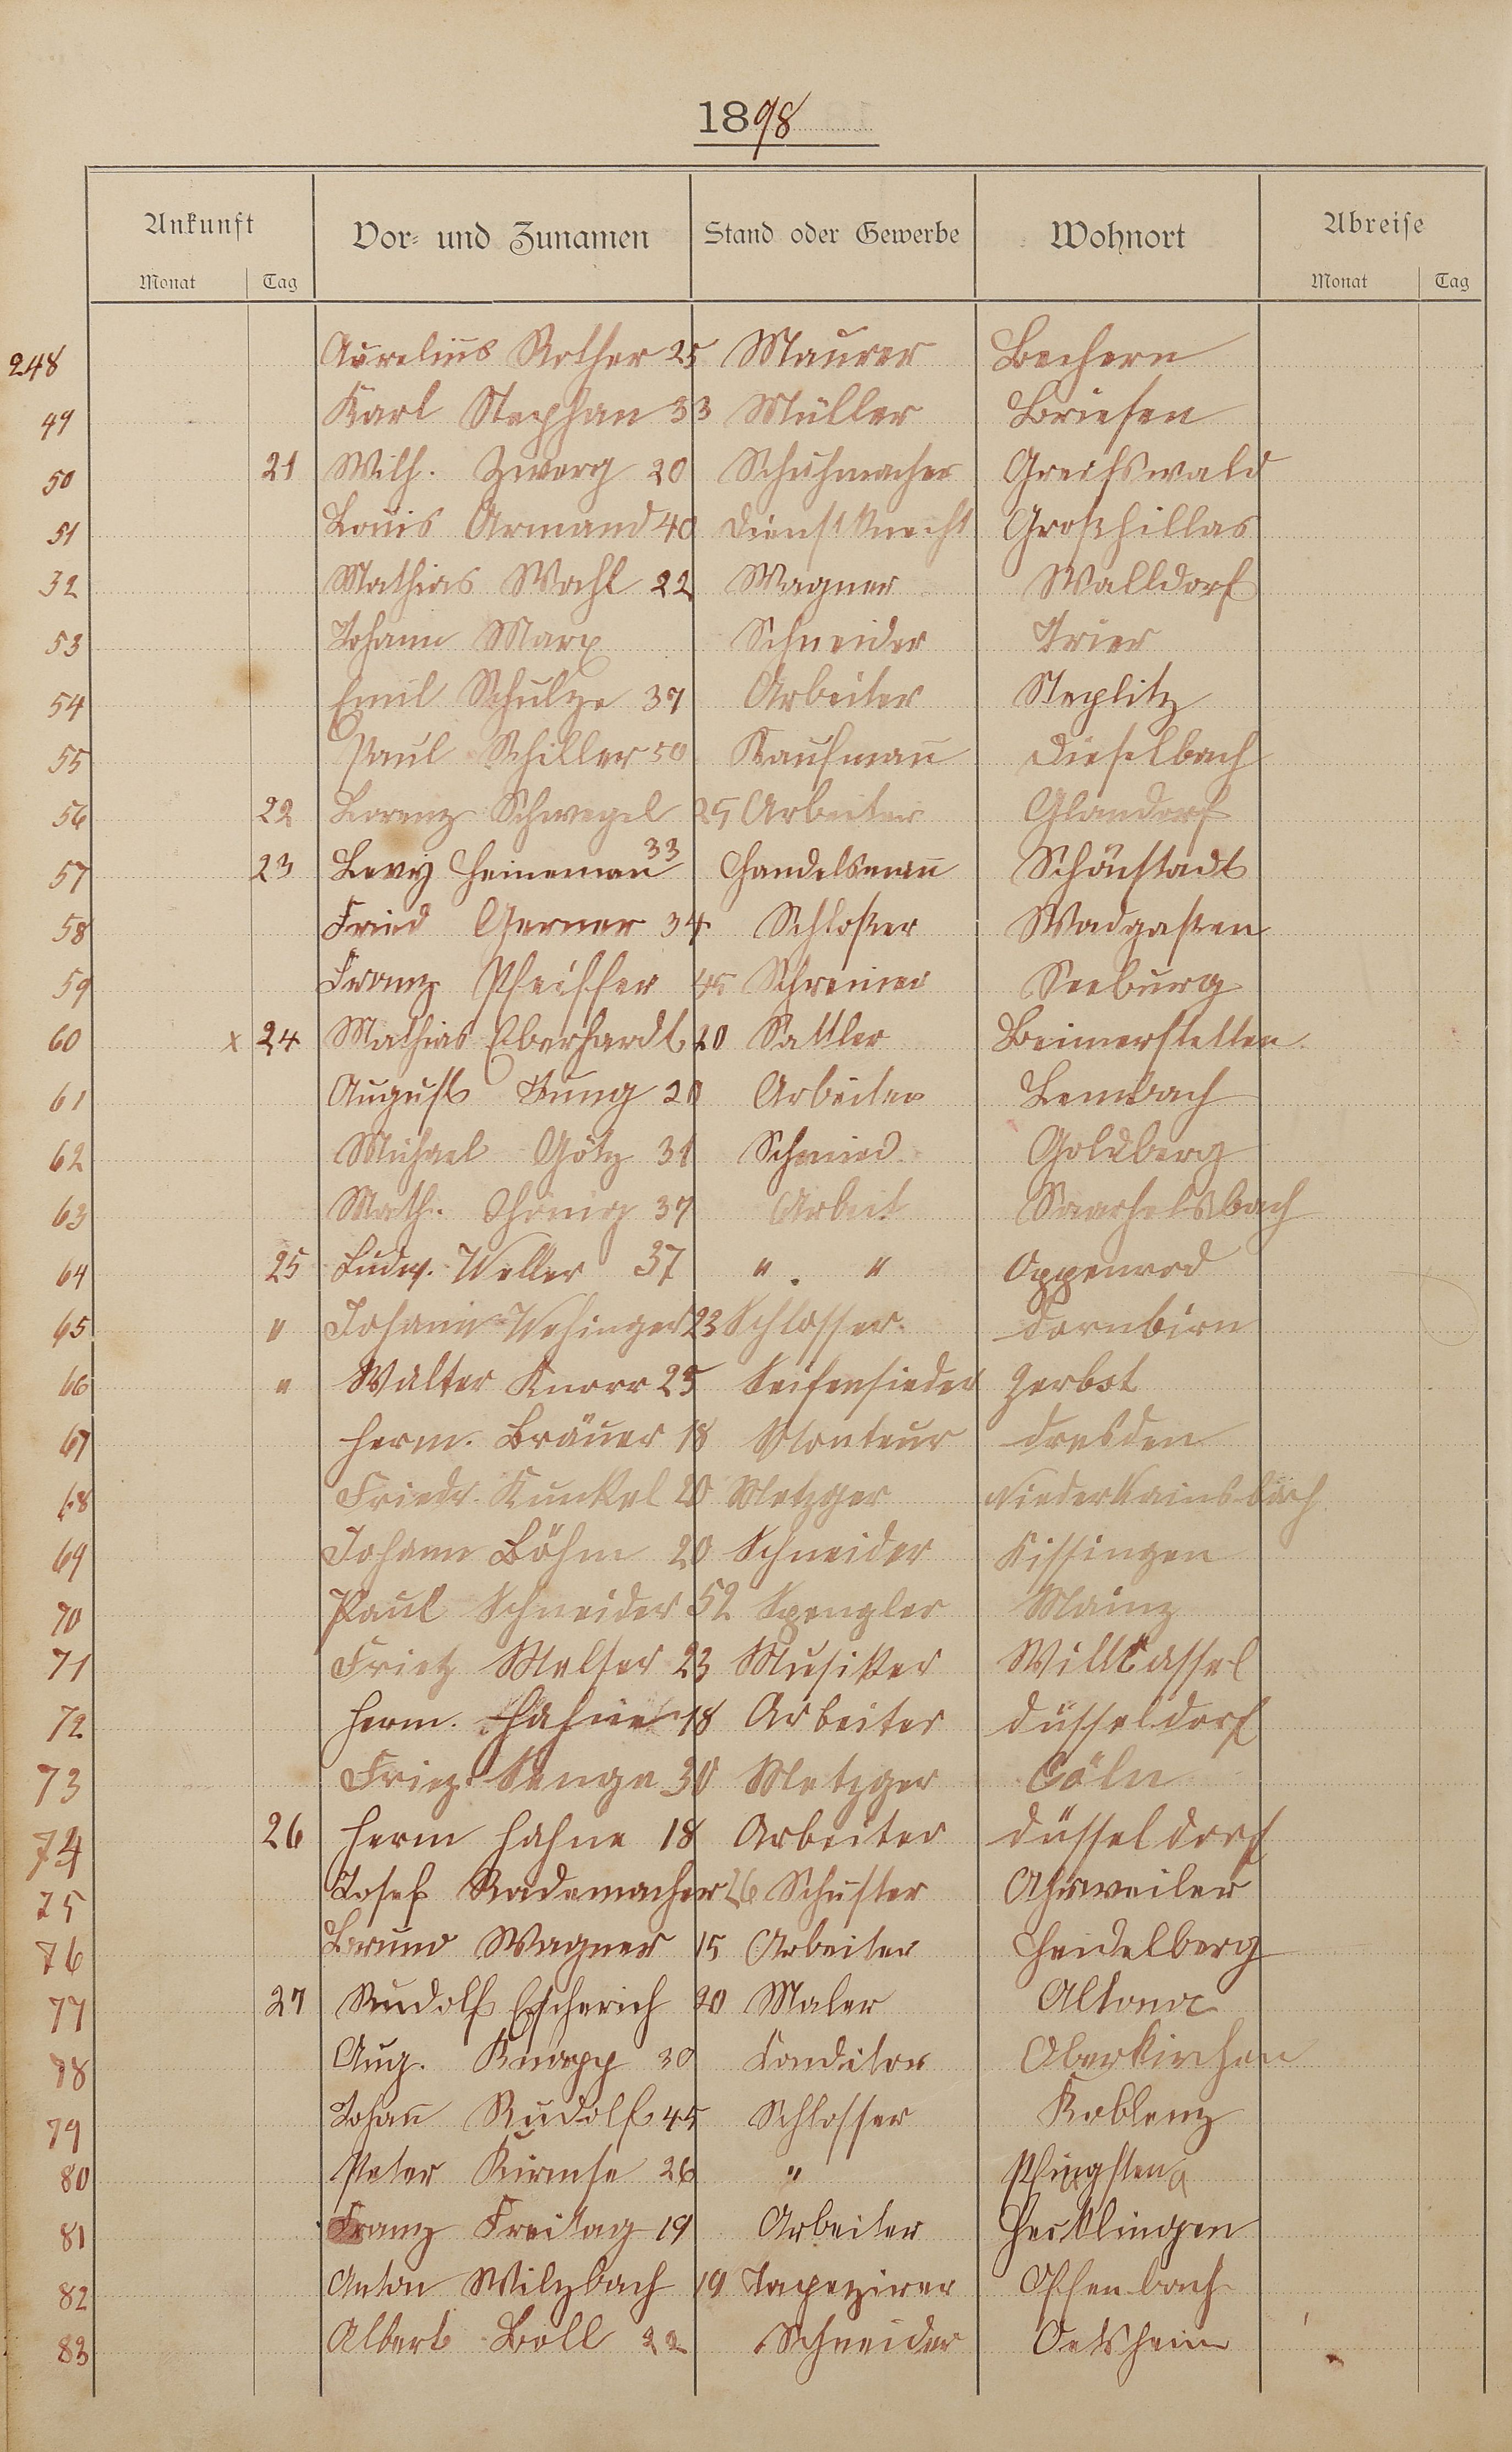 1898
Ankunft Vor- und Zunamen Stand oder Gewerbe Wohnort Abreise
Monat Tag Monat Tag
248 Aurelius Rother 25 Maurer Bechern
49 Karl Stephan 33 Müller Briesen
50 21 Wilh. Zwerg 20 Schuhmacher Greifswald
51 Louis Armand 40 Dienstknecht Großhillas
32 Mathias Wahl 22 Wagner Walldorf
53 Johann Marx Schneider Trier
54 Emil Schulze 37 Arbeiter Steplitz
55 Paul Schiller 50 Kaufmann Dieselbach
56 22 Lorenz Schwegel 25 Arbeiter Glandorf
57 23 Levy Heineman 33 Handelsmann Schönstadt
58 Fried Gerner 34 Schloßer Wadgaßen
59 Franz Pfeiffer Schreiner Seeburg
60 x 24 Mathias Eberhardt 20 Sattler Beimerstetten
61 August Jung 20 Arbeiter Lembach
62 Michael Götz 31 Schmied Goldberg
63 Math. 37 Arbeit
64 25 Ludw. Weller 37 " . " Oppenrod
65 " Johann Wehinger 23 Schlosser. Dornbirn
66 " Walter Knorr 25 Seifensieder Zerbst
67 Herm. Bräuer 18 Monteur Dresden
68 Friedr. Kunkel 20 Metzger Niederkainsbach
69 Johann Böhm 20 Schneider Kissingen
70 Paul Schneider 52 Spengler Mainz
71 Frietz Melser 23 Musiker Willkassel
72 Herm. Hahne 18 Arbeiter Düsseldorf
73 Friez. Senge 30 Metzger Cöln
74 26 Herm Hahne 18 Arbeiter Düsseldorf
75 Josef Rademacher 26 Schuster Ahrweiler
76 Bruno Wagner 15 Arbeiter Heidelberg
77 27 Rudolf Escherich 20 Maler Altona
78 Aug. Knapp 30 Conditor Oberkirchen
79 Johann Rudolf 45 Schlosser Koblenz
80 Peter Kirmse 26 " Pfingsten
81 Franz Freitag 19 Arbeiter Hecklingen
82 Anton Wilzbach 19 Tapezirer Offenbach
83 Albert Boll 22 Schneider Oetsheim